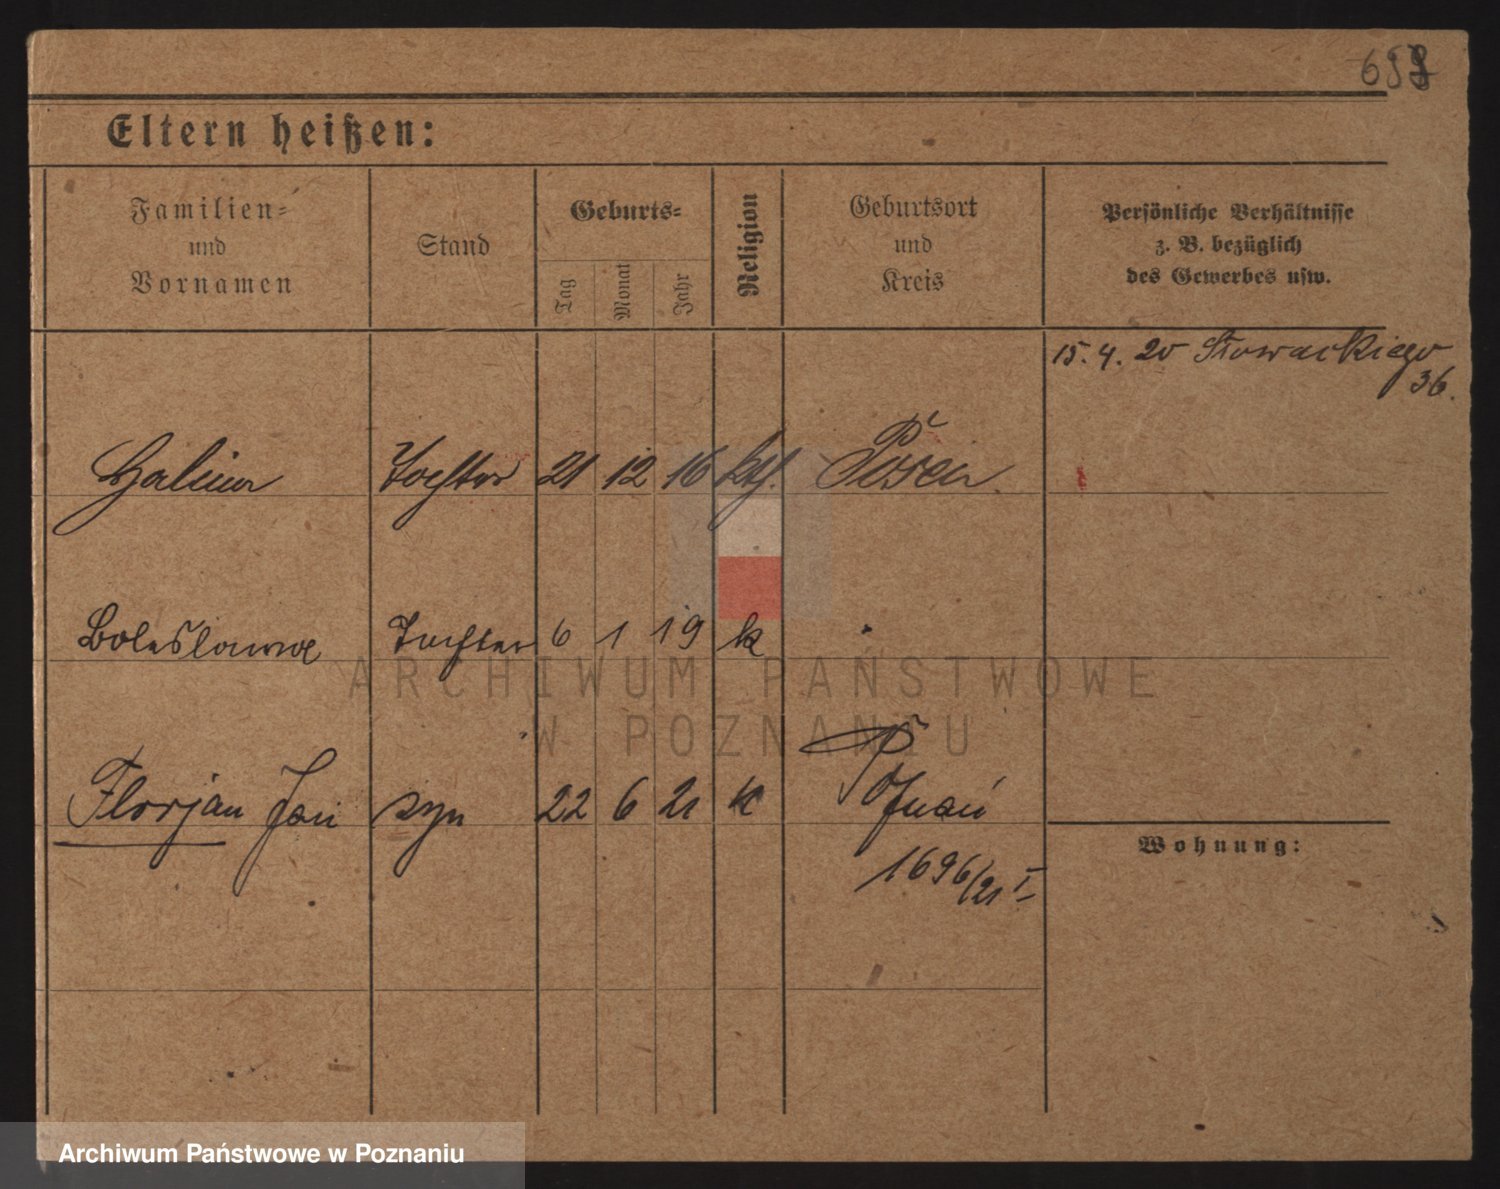 Eltern heißen:
Familien-
und
Vornamen
Stand
Geburts-
Tag
Monat
Jahr
Religion
Geburtsort
und
Kreis
Persönliche Verhältnisse
z. B. bezüglich
des Gewerbes usw.
15. 4. 20 Słowackiego
36.
Halina Tochter 21 12 16 kth. Posen
Boleslawa Tochter 6 1 19 k "
Florjan Jan syn 22 6 21 k Poznań
1696/21 I
Wohnung:
ARCHIWUM PAŃSTWOWE
W POZNANIU
Archiwum Państwowe w Poznaniu